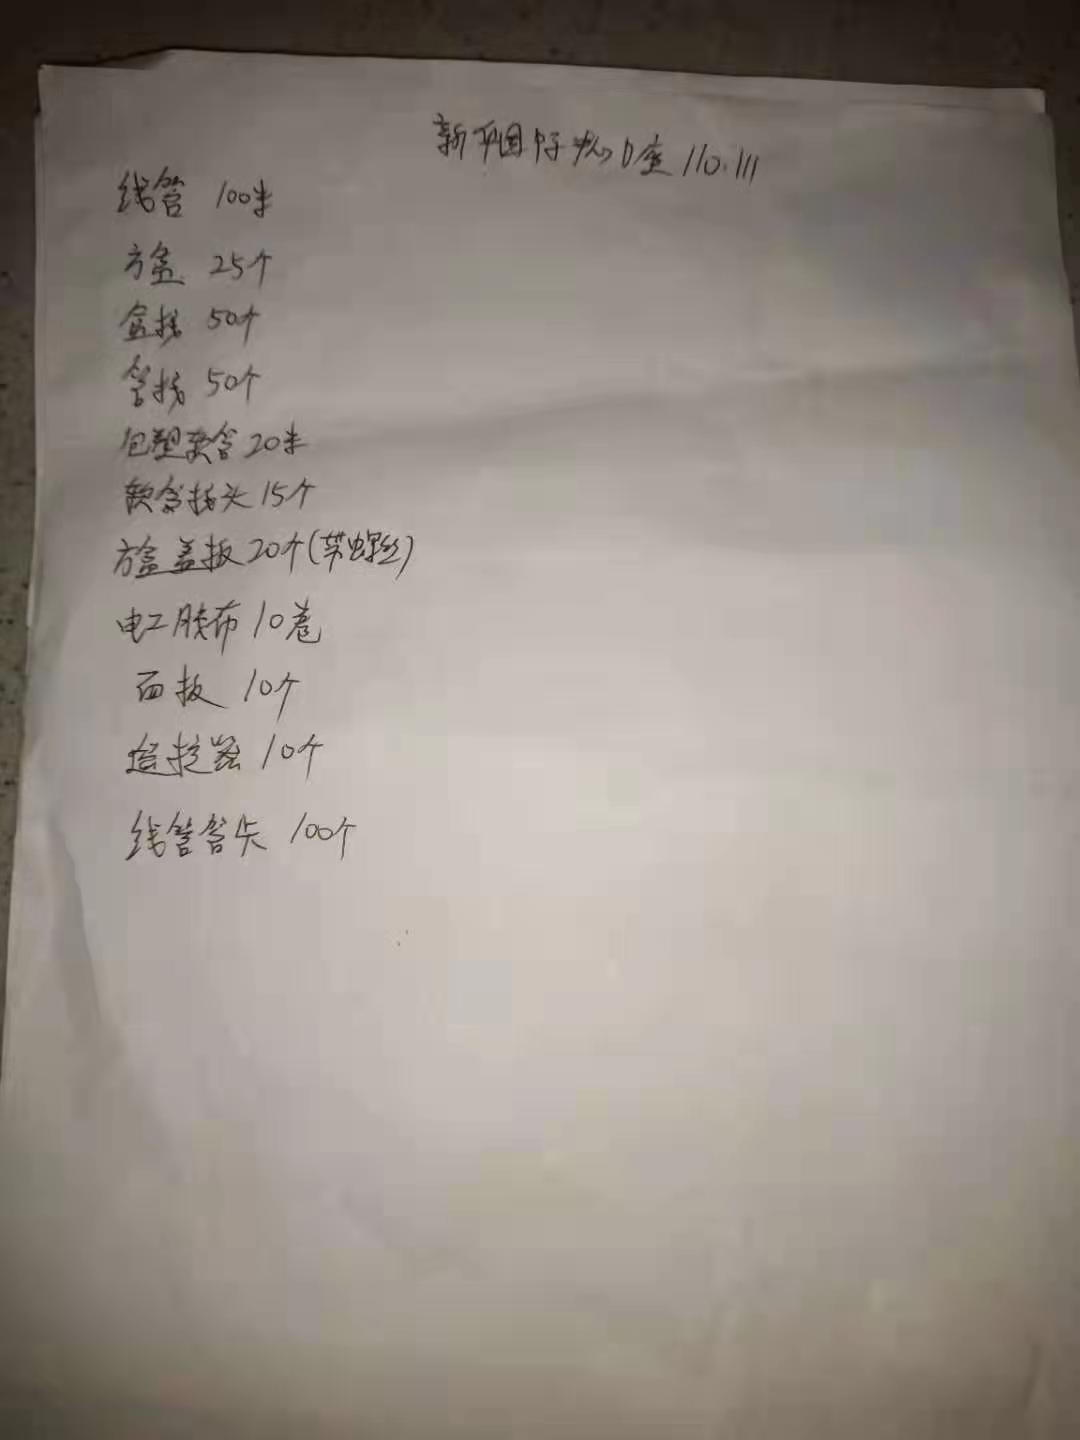 新 D座 110.111
线管 100米
方盒 25个
盒接 50个
管接 50个
包塑软管 20米
软管接头 15个
方盒盖板 20个(带螺丝)
电工胶布 10卷
面板 10个
连接器 10个
线管管卡 100个